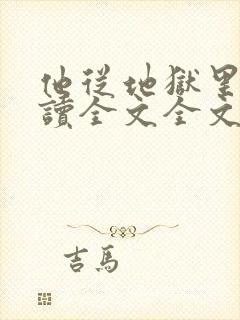 他從地獄里
讀全文全文
吉馬